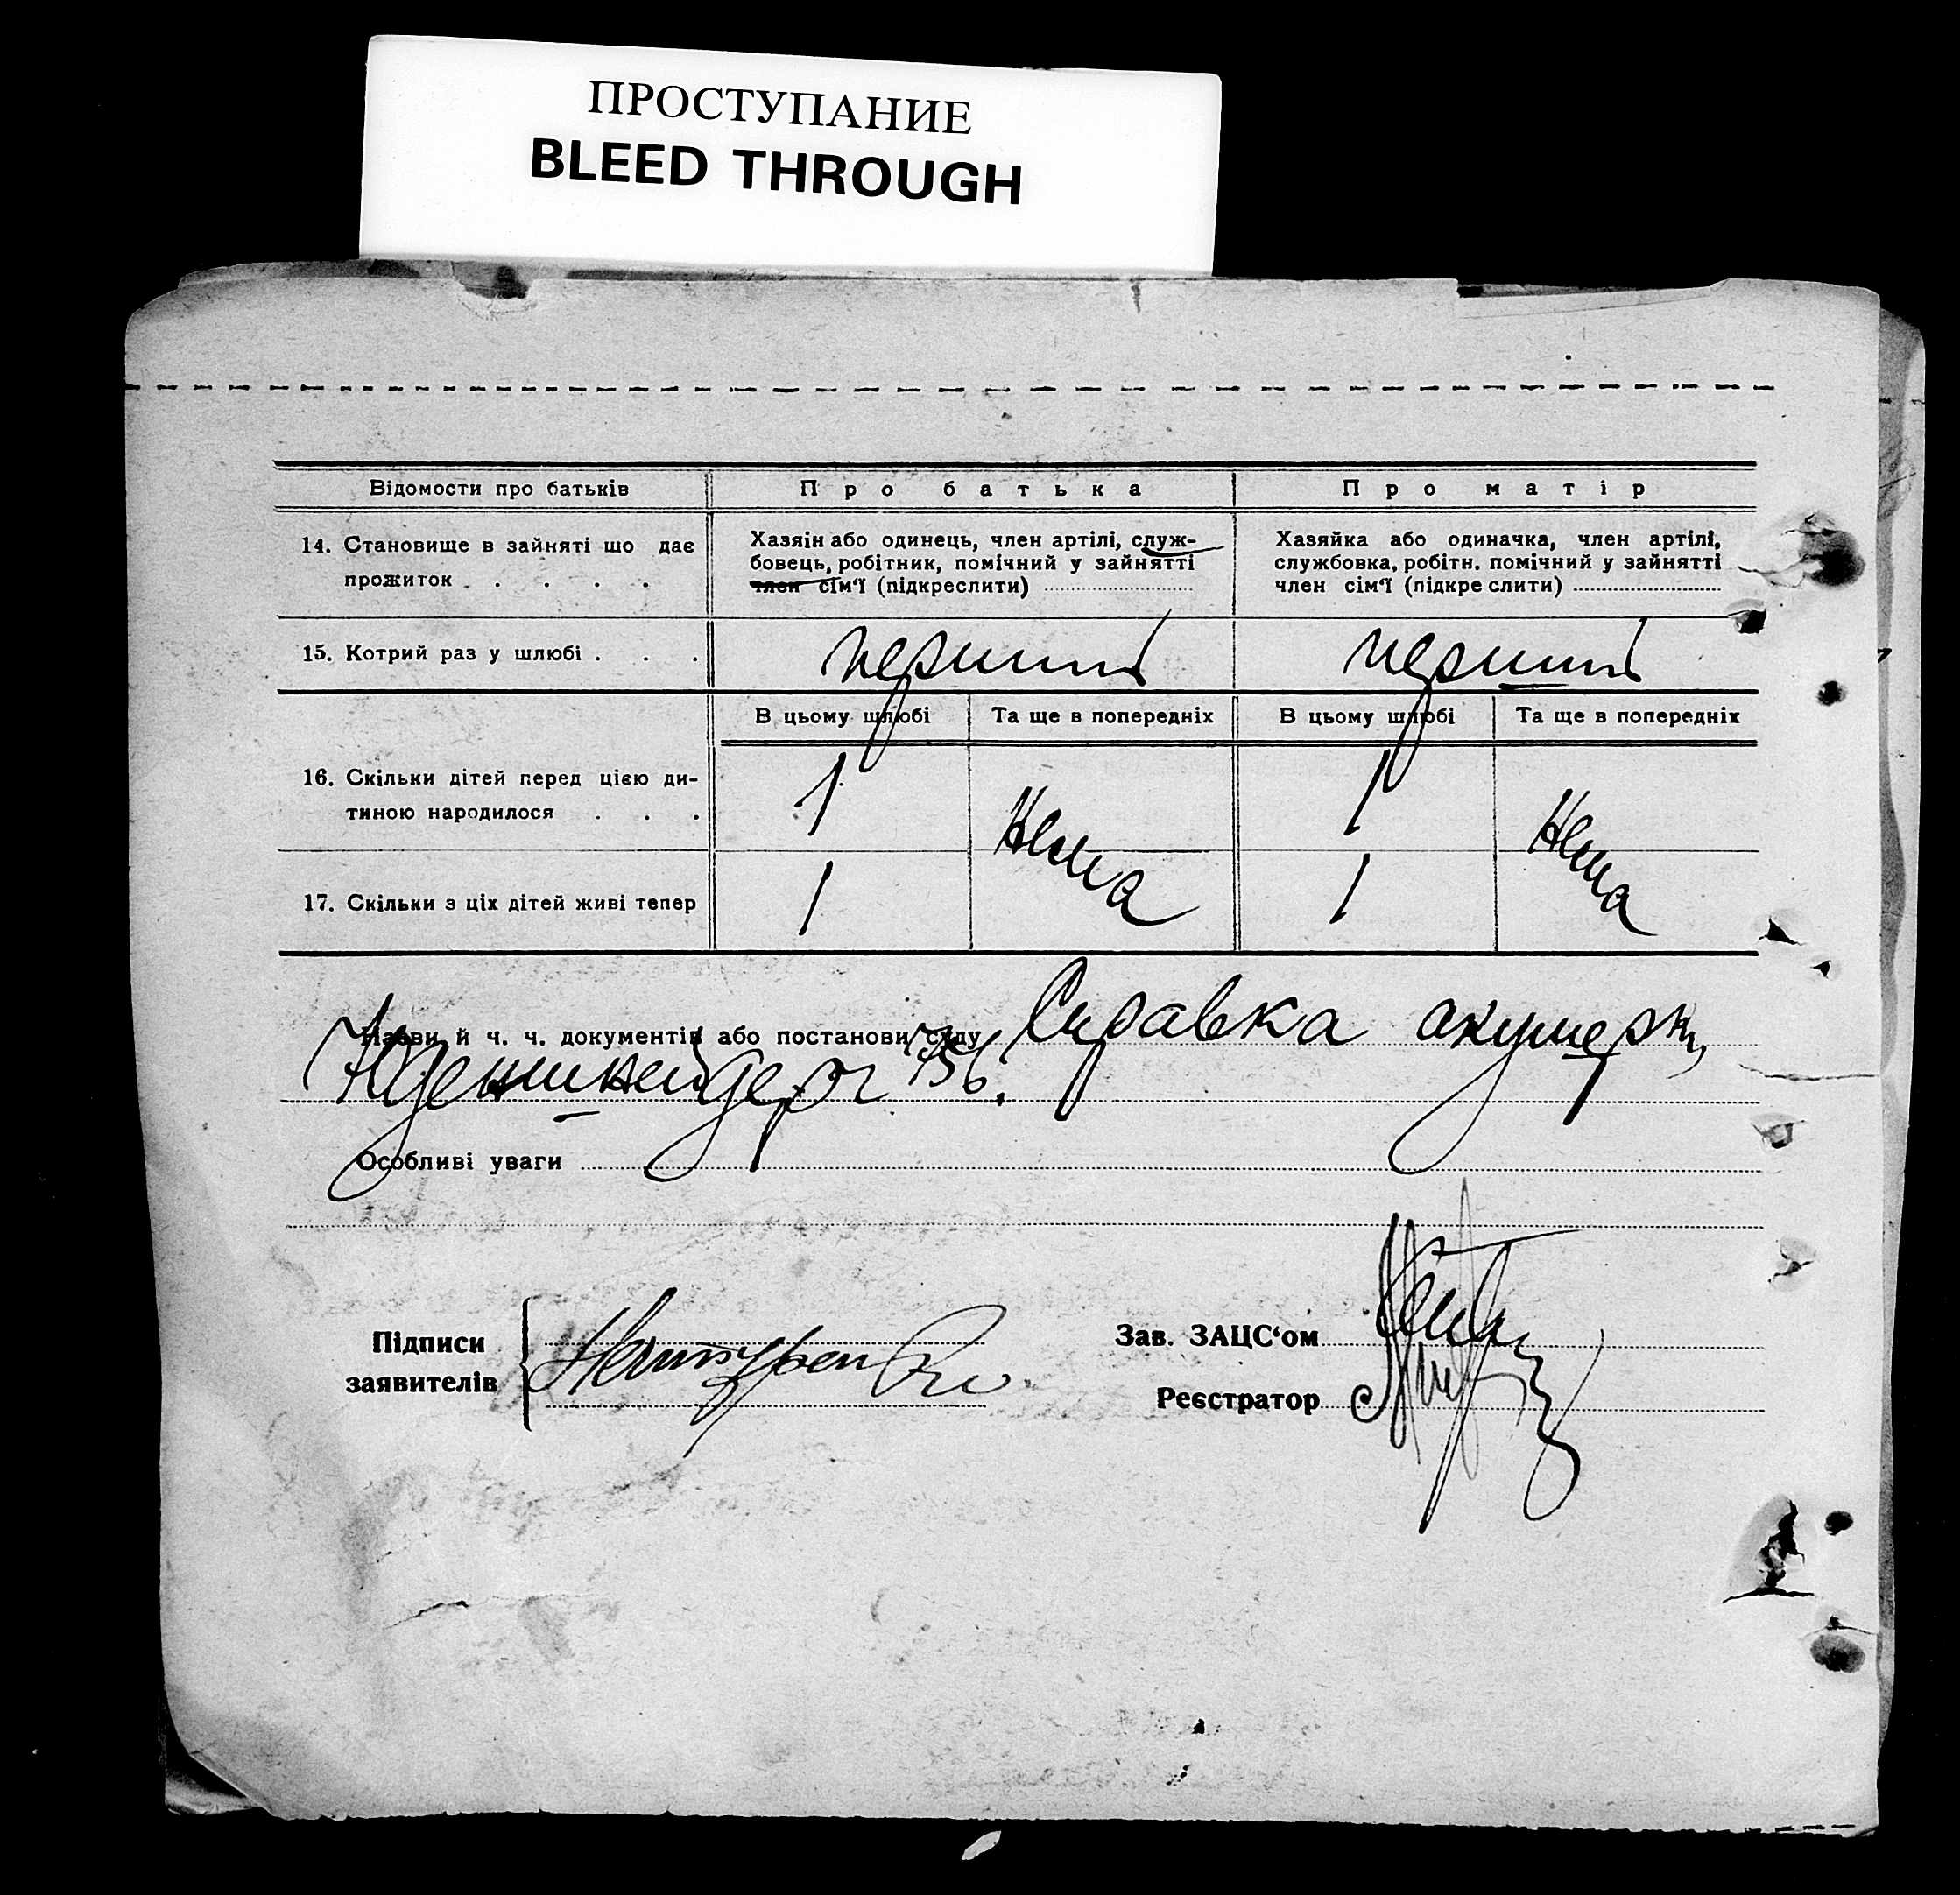 ПРОСТУПАНИЕ
BLEED THROUGH
Відомости про батьків
Про батька
Про матір
14. Становище в зайняті що дає
прожиток . . . .
Хазяін або одинець, член артілі, служ-
бовець, робітник, помічний у зайнятті
член сім'ї (підкреслити)
Хазяйка або одиначка, член артілі,
службовка, робітн. помічний у зайнятті
член сім'ї (підкреслити)
15. Котрий раз у шлюбі . . .
перший
перший
В цьому шлюбі
Та ще в попередніх
В цьому шлюбі
Та ще в попередніх
16. Скільки дітей перед цією ди-
тиною народилося . . .
1
Нема
1
Нема
17. Скільки з ціх дітей живі тепер
1
1
Назви й ч. ч. документів або постанови суду Справка акушерки
Особливі уваги
Підписи
заявителів
Зав. ЗАЦС'ом
Реєстратор